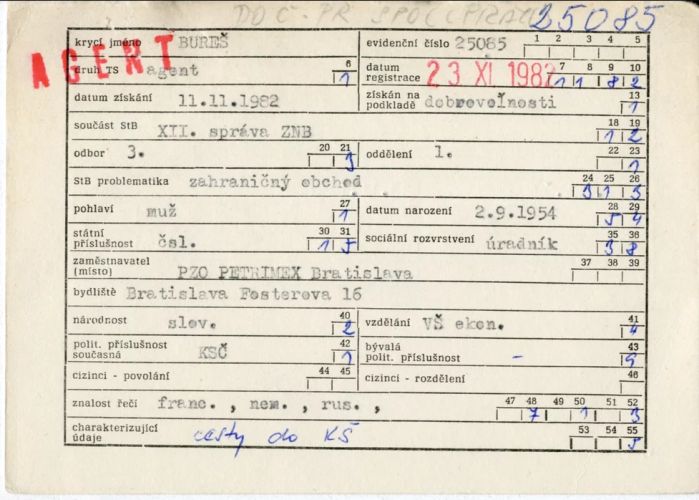 DOC. PR SPOLUPRAC
25085
krycí jméno BUREŠ
evidenční číslo 25085 1 2 3 4 5
AGENT
druh TS agent 6 1
datum registrace 23 XI 1982 7 8 9 10 1 1 8 2
datum získání 11.11.1982
získán na podkladě dobrovoľnosti 13 1
součást StB XII. správa ZNB 18 19 1 2
odbor 3. 20 21 3
oddělení 1. 22 23 1
StB problematika zahraničný obchod 24 25 26 3 1 3
pohlaví muž 27 1
datum narození 2.9.1954 28 29 5 4
státní příslušnost čsl. 30 31 1 5
sociální rozvrstvení úradník 35 36 3 8
zaměstnavatel (místo) PZO PETRIMEX Bratislava 37 38 39
bydliště Bratislava Fosterova 16
národnost slov. 40 2
vzdělání VŠ ekon. 41 4
polit. příslušnost současná KSČ 42 1
bývalá polit. příslušnost - 43 9
cizinci - povolání 44 45
cizinci - rozdělení 46
znalost řečí franc., nem., rus., 47 48 49 50 51 52 7 1 3
charakterizující údaje cesty do KŠ 53 54 55 5